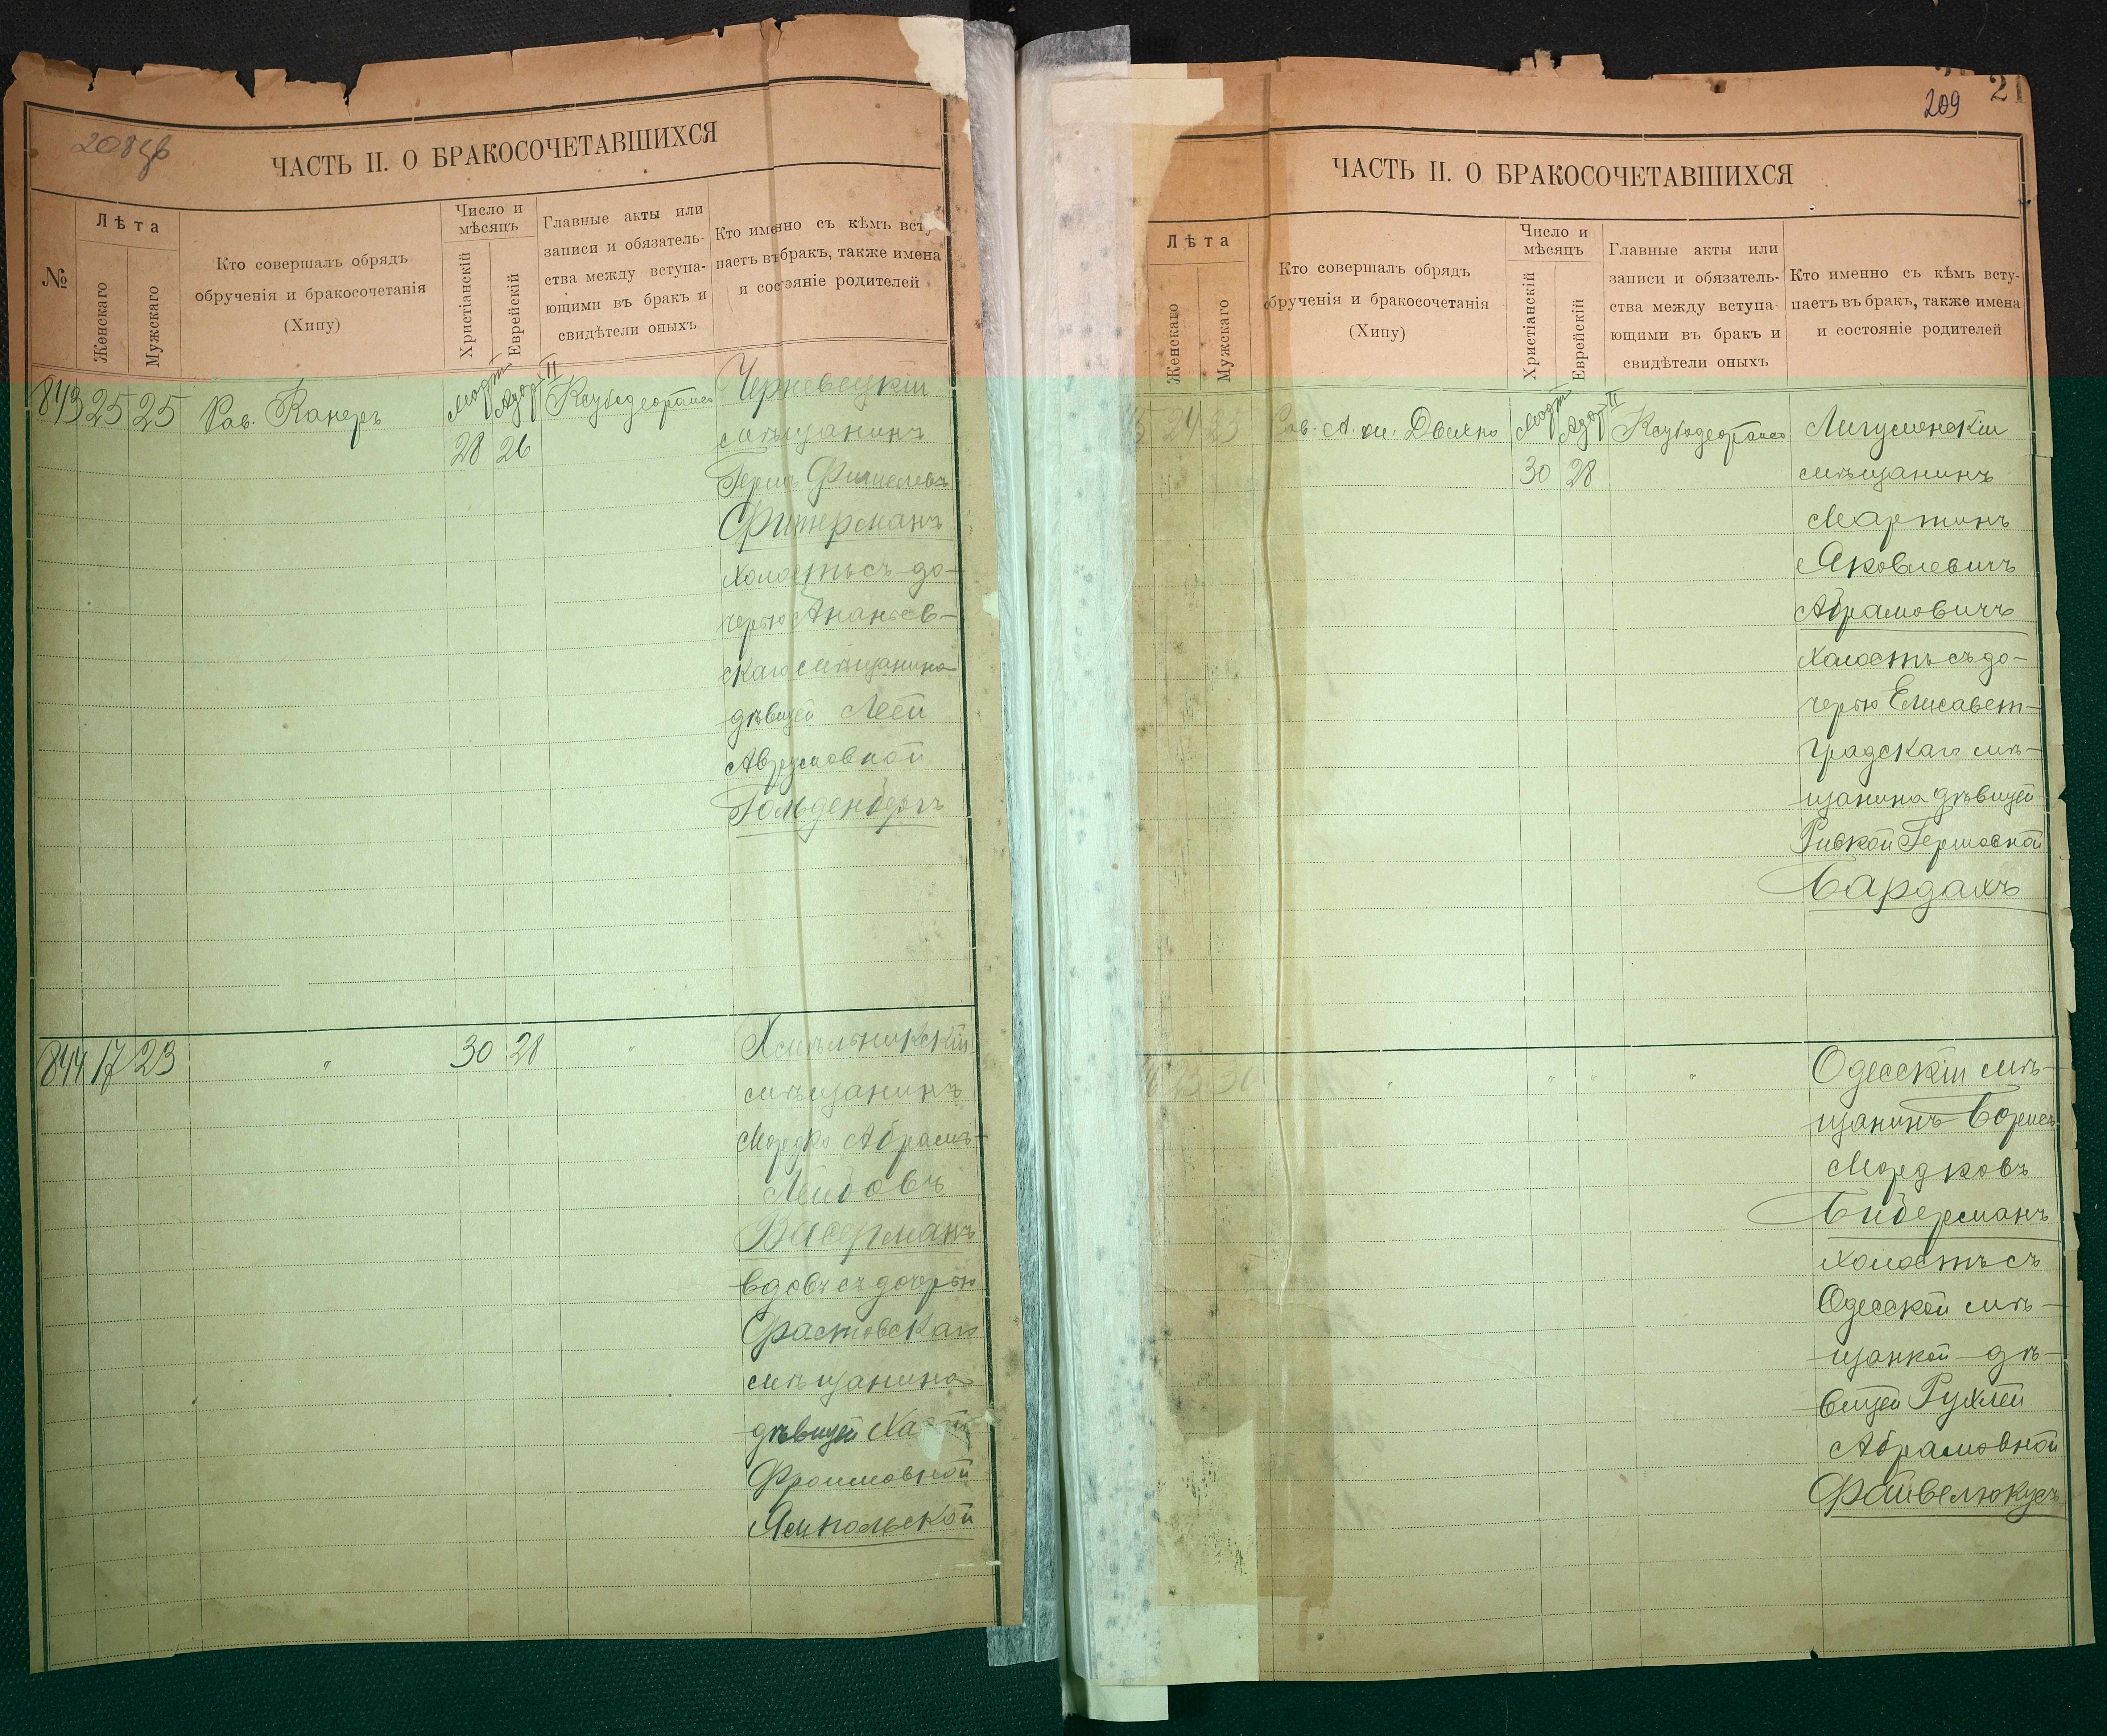 208
ЧАСТЬ II. О БРАКОСОЧЕТАВШИХСЯ
№
Лѣта
Женскаго
Мужскаго
Кто совершалъ обрядъ
обрученія и бракосочетанія
(Хипу)
Число и
мѣсяцъ
Христіанскій
Еврейскій
Главные акты или
записи и обязатель-
ства между вступа-
ющими въ бракъ и
свидѣтели оныхъ
Кто именно съ кѣмъ всту-
паетъ въ бракъ, также имена
и состояніе родителей
843 25 25 Рав. Канеръ Мартъ 28 Адар II 26
Черневецкій
мѣщанинъ
Герш Фишелевъ
Фитерманъ
холостъ съ до-
черью Ананьев-
скаго мѣщанина
дѣвицей Леей
Аврумовной
Гольденбергъ
844 17 23 " 30 28 "
Хмѣльникскій
мѣщанинъ
Мордко Абрамъ-
Лейбовъ
Васерманъ
вдовъ съ дочерью
Фастовскаго
мѣщанина
дѣвицей
Фроимовной
Ямпольской
209
21
ЧАСТЬ II. О БРАКОСОЧЕТАВШИХСЯ
Лѣта
Женскаго
Мужскаго
Кто совершалъ обрядъ
обрученія и бракосочетанія
(Хипу)
Число и
мѣсяцъ
Христіанскій
Еврейскій
Главные акты или
записи и обязатель-
ства между вступа-
ющими въ бракъ и
свидѣтели оныхъ
Кто именно съ кѣмъ всту-
паетъ въ бракъ, также имена
и состояніе родителей
5 24 25 Рав. А. Мартъ 30 Адар II 28
Лигуменскій
мѣщанинъ
Мартинъ
Яковлевичъ
Абрамовичъ
холостъ съ до-
черью Елисавет-
градскаго мѣ-
щанина дѣвицей
Ривкой Гершовной
Бардахъ
23 30 " " " "
Одесскій мѣ-
щанинъ Борисъ
Мордковъ
Биберманъ
холостъ съ
Одесской мѣ-
щанкой дѣ-
вицей Рухлей
Абрамовной
Файвелюкусъ